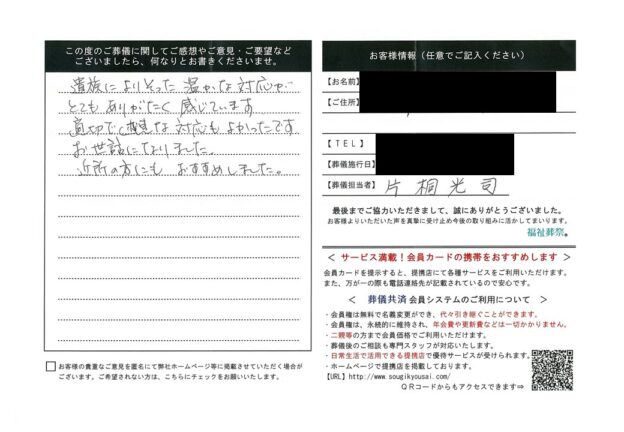 この度のご葬儀に関してご感想やご意見・ご要望など
ございましたら、何なりとお書きくださいませ。
遺族によりそった 温かな対応が
とても ありがたく 感じています
適切で 親切な 対応も よかったです
お世話になりました。
近所の方にも おすすめしました。
お客様の貴重なご意見を匿名にて弊社ホームページ等に掲載させていただく場合が
ございます。ご希望されない方は、こちらにチェックをお願いいたします。
お客様情報（任意でご記入ください）
【お名前】
【ご住所】
【ＴＥＬ】
【葬儀施行日】
【葬儀担当者】 片桐光司
最後までご協力いただきまして、誠にありがとうございました。
お客様よりいただいた声を真摯に受け止め今後の取り組みに活かしてまいります。
福祉葬祭。
＜ サービス満載！会員カードの携帯をおすすめします ＞
会員カードを提示すると、提携店にて各種サービスをご利用いただけます。
また、万が一の際も電話連絡先が記載されているので安心です。
＜ 葬儀共済 会員システムのご利用について ＞
・会員権は無料で名義変更ができ、代々引き継ぐことができます。
・会員権は、永続的に維持され、年会費や更新費などは一切かかりません。
・二親等の方まで会員価格でご利用いただけます。
・葬儀後のご相談も専門スタッフが対応いたします。
・日常生活で活用できる提携店で優待サービスが受けられます。
・ホームページで提携店を掲載しております。
【URL】http://www.sougikyousai.com/
ＱＲコードからもアクセスできます⇒